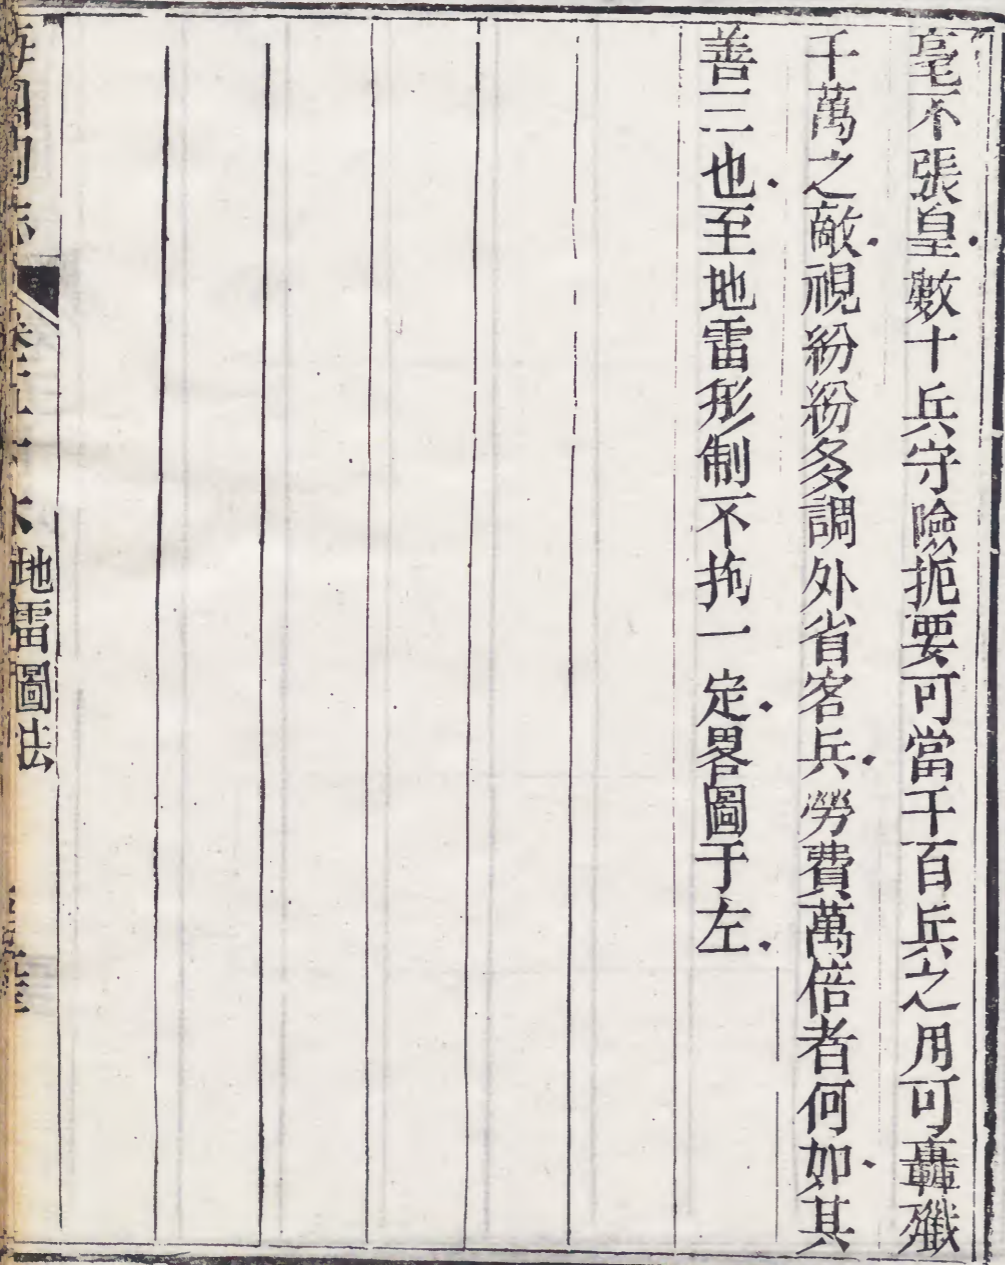 毫不張皇數十兵守險扼要可當千百兵之用可轟殲
千萬之敵視紛紛多調外省客兵勞費萬倍者何如其
善三也至地雷形制不拘一定畧圖于左
地雷圖法